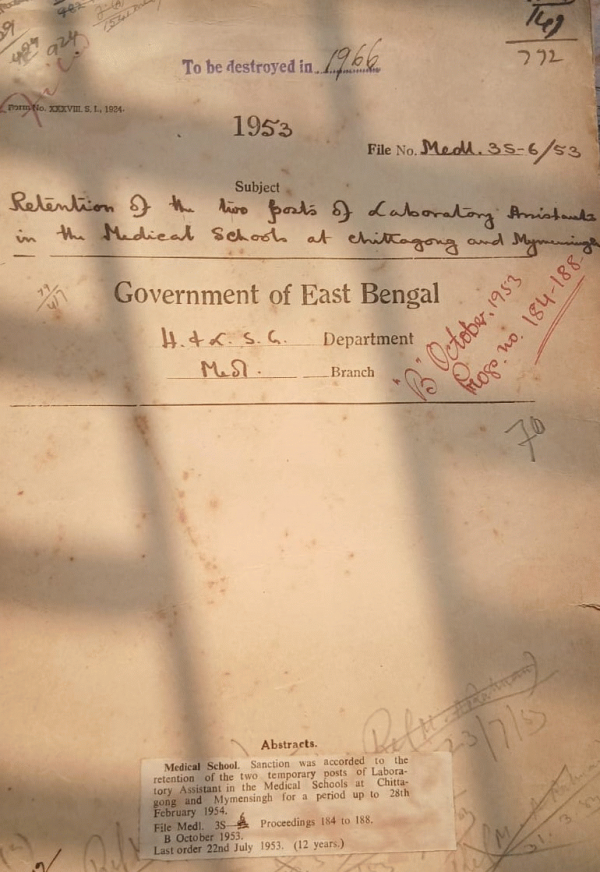 772
To be destroyed in 1966
Form No. XXXVIII. S. I., 1924.
1953
File No. Medl. 3S-6/53
Subject
Retention of the two posts of Laboratory Assistants
in the Medical Schools at Chittagong and Mymensingh
Government of East Bengal
H. & L. S. G. Department
Medl. Branch
"B" October, 1953
Progs. no. 184-188.
70
Abstracts.
Medical School. Sanction was accorded to the
retention of the two temporary posts of Labora-
tory Assistant in the Medical Schools at Chitta-
gong and Mymensingh for a period up to 28th
February 1954.
File Medl. 3S-6 Proceedings 184 to 188.
B October 1953.
Last order 22nd July 1953. (12 years.)
23/7/53